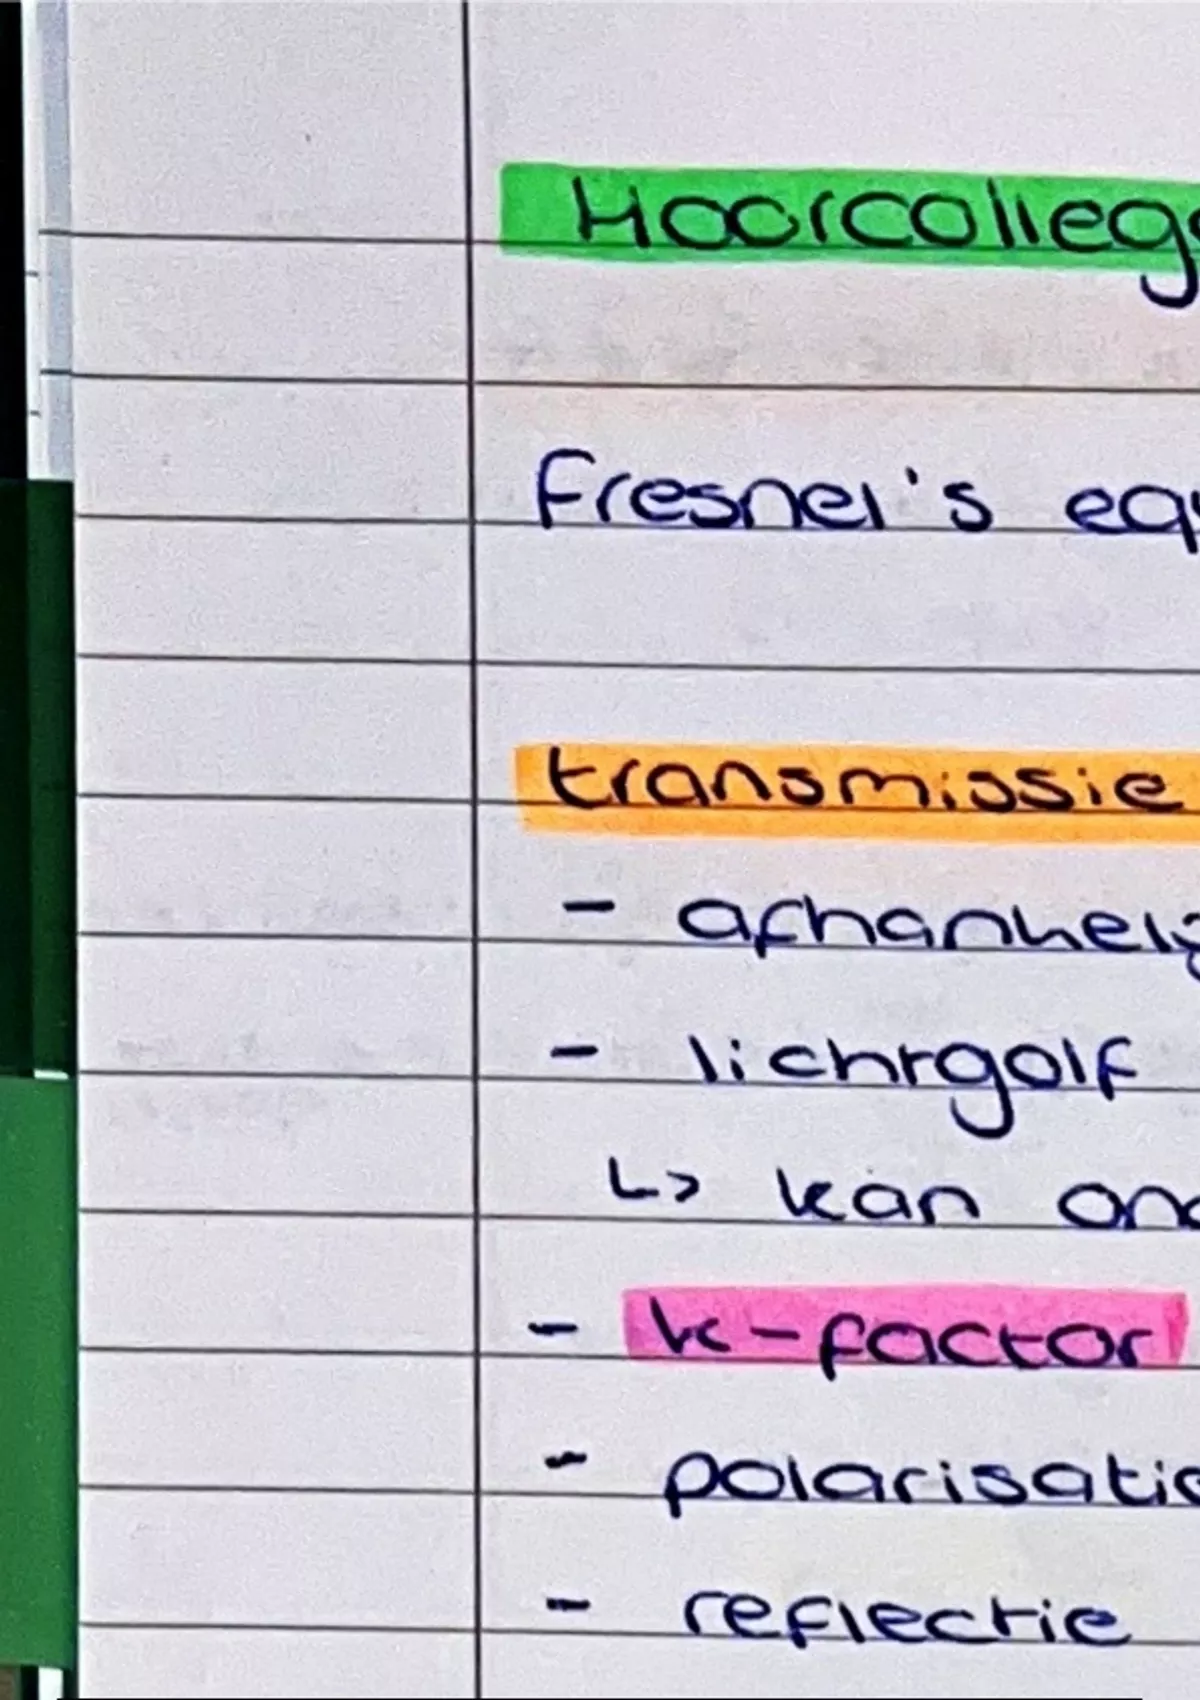 Hoorcolleg
Fresnel's eq
transmissie
- afhankelij
- lichtgolf
↳ kan on
- k-factor
- polarisatio
- reflectie